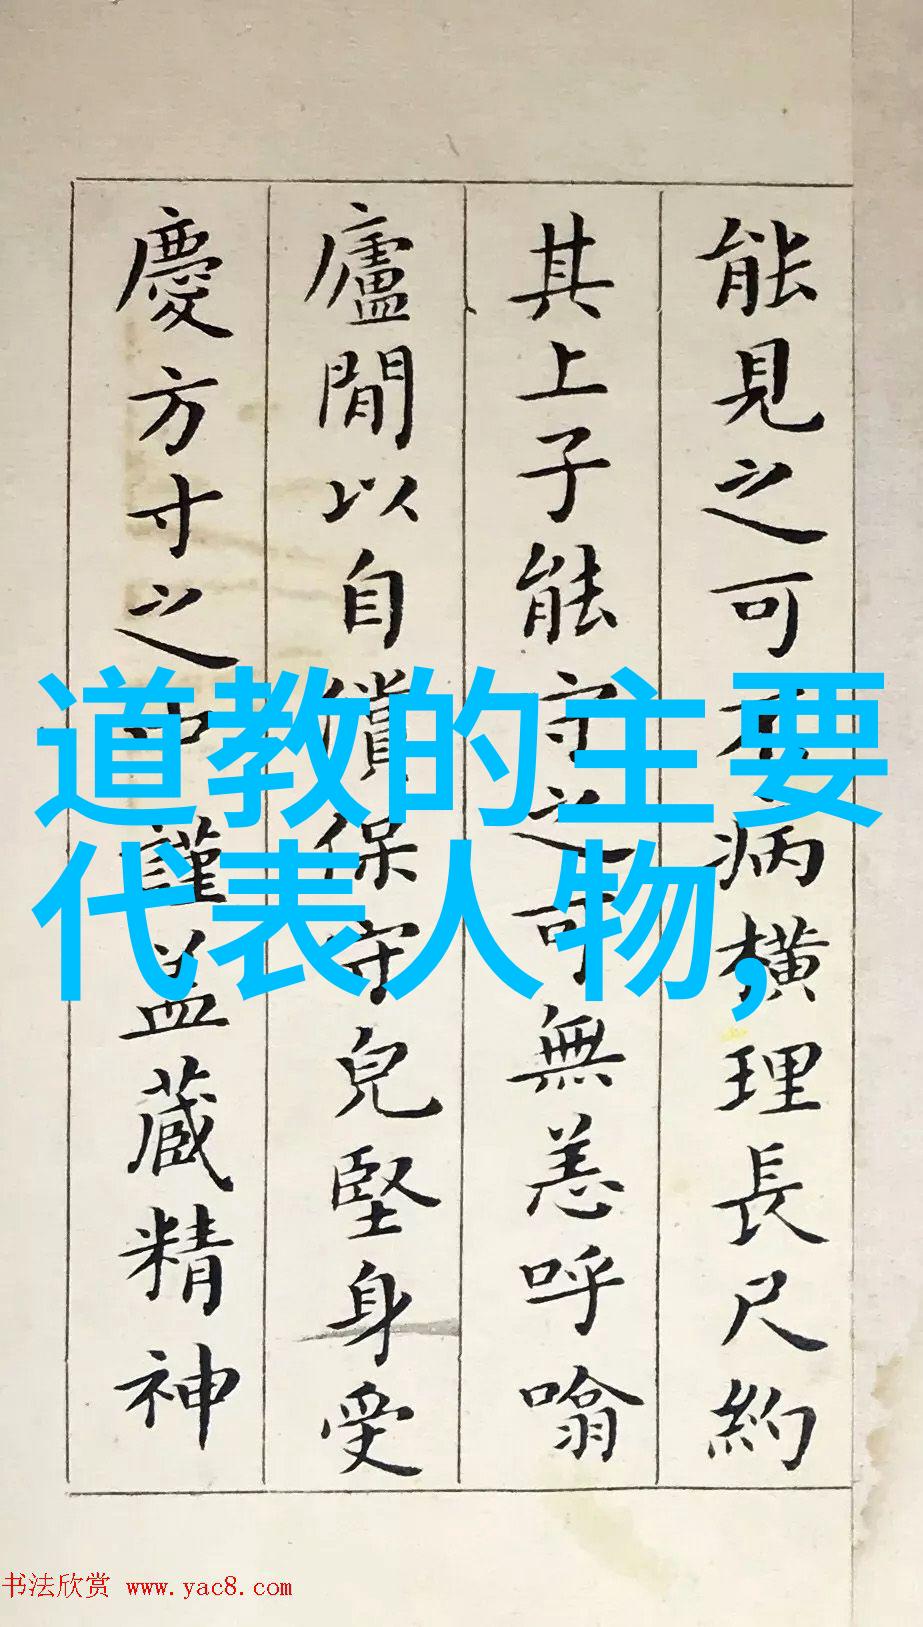 能見之可不病橫理長尺約
其上子能守之可無恙呼噏
廬閒以自償保守兒堅身受
慶方寸之中謹盖藏精神
道教的主要
代表人物,
书法欣赏 www.yac8.com